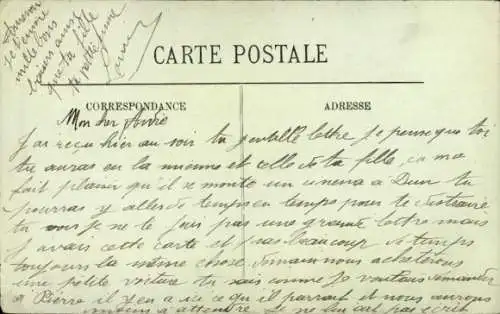 mille bons
baisers ainsi
que ta fille
ta petite femme
CARTE POSTALE
CORRESPONDANCE
ADRESSE
Mon cher André
J'ai reçu hier au soir ta gentille lettre je pense que toi
tu auras eu la mienne et celle de ta fille, ça me
fait plaisir qu'il se monte un cinema a Dun tu
pourras y aller de temps en temps pour te distraire
tu vois je ne te fais pas une grande lettre mais
j'avais cette carte et pas beaucoup de temps
toujours la même chose. Demain nous achèterons
une petite voiture tu sais comme je voulais demander
a Pierre il y en a ici ce qu'il parrait et nous aurons
moins a attendre. Je ne lui ait pas écrit